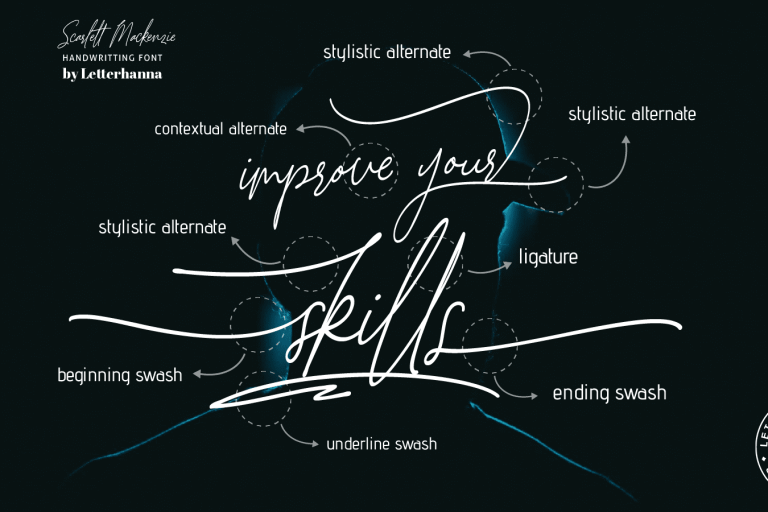 Scarlett Mackenzie
HANDWRITTING FONT
by Letterhanna
stylistic alternate
stylistic alternate
contextual alternate
improve your
stylistic alternate
ligature
skills
beginning swash
ending swash
underline swash